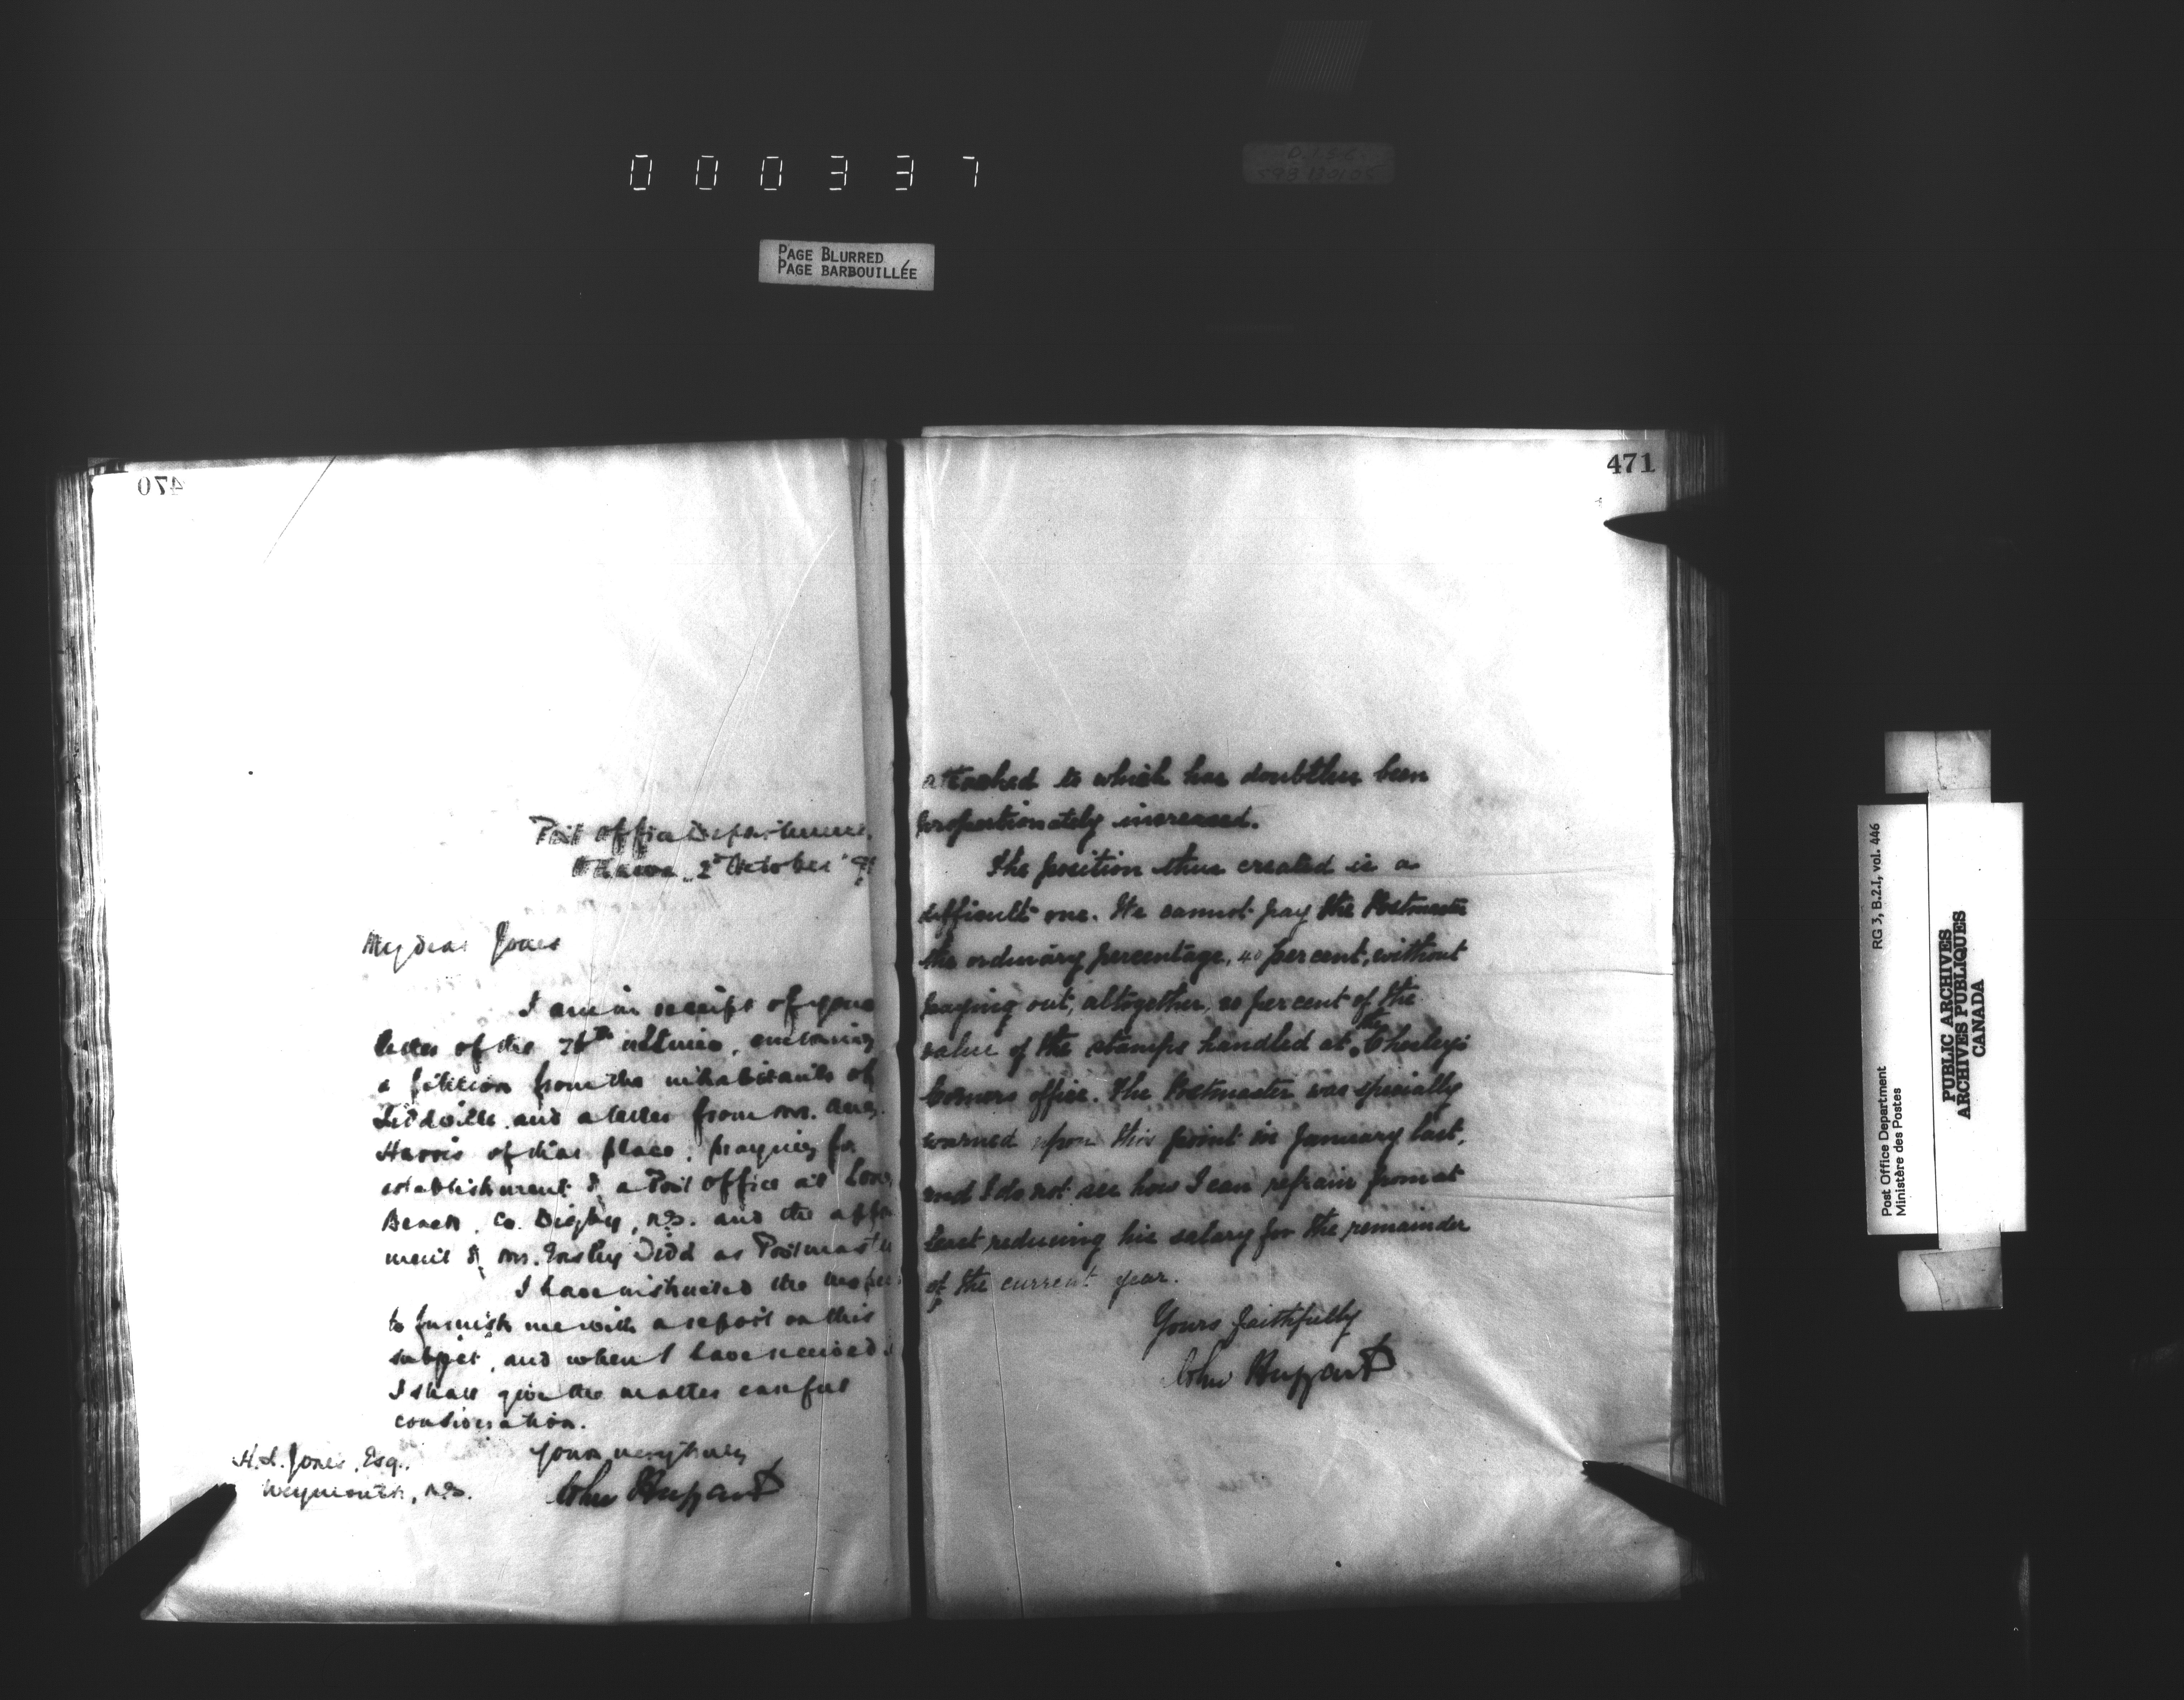 000337
PAGE BLURRED
PAGE BARBOUILLÉE
470
Post Office Department,
Ottawa, 2d October
My dear Jones
I am in receipt of your
letter of the ultimo, enclosing
a petition from the inhabitants of
and a letter from Mr.
Harris of that place, praying for
establishment of a Post Office at
Beach, Co. Digby, N.S. and the
ment of Mr. Tidd as Postmaster
I have instructed the
to furnish me with a report on this
subject, and when I have received
I shall give the matter careful
consideration.
Yours very truly
John Haggart
H. L. Jones, Esq.,
Weymouth, N.S.
471
attached to which has doubtless been
proportionately increased.
The position thus created is a
difficult one. We cannot pay the Postmaster
the ordinary percentage, 40 per cent, without
paying out, altogether, per cent of the
value of the stamps handled at the
Corners office. The Postmaster was specially
warned upon this point in January last,
and I do not see how I can refrain from at
least reducing his salary for the remainder
of the current year.
Yours faithfully
John Haggart
RG 3, B.2.I, vol. 446
Post Office Department
Ministère des Postes
PUBLIC ARCHIVES
ARCHIVES PUBLIQUES
CANADA